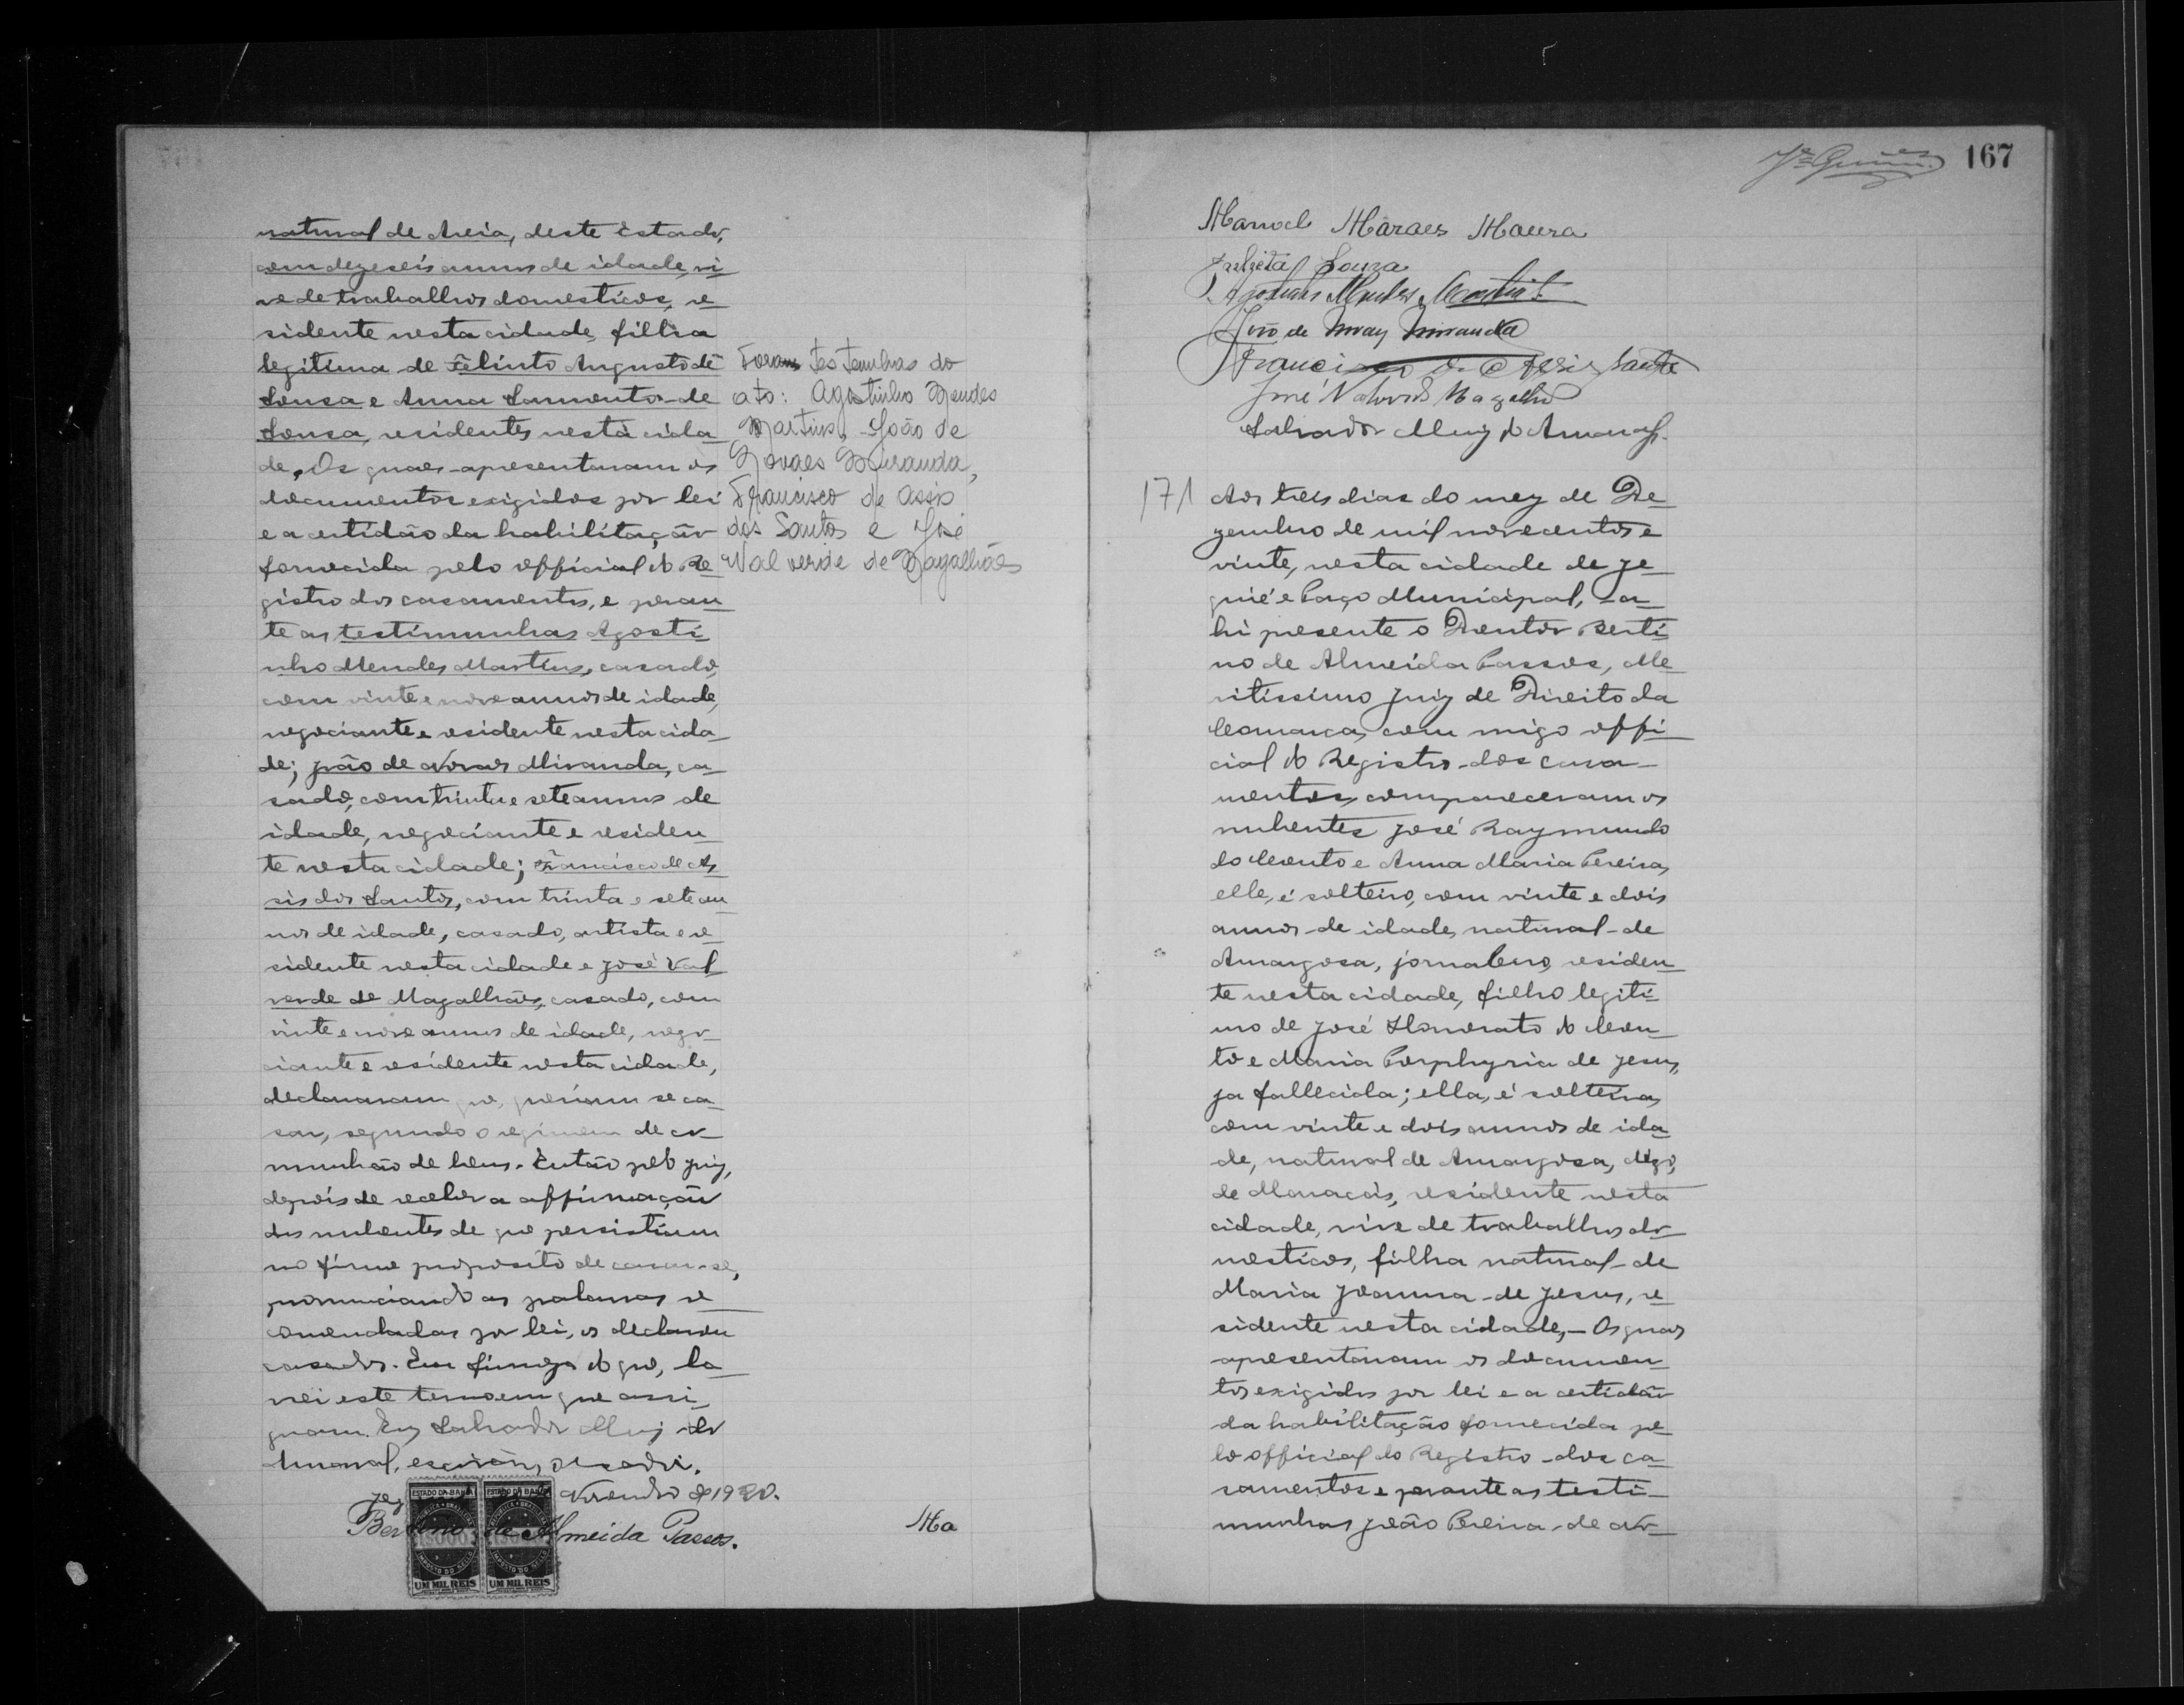 natural de Areia, deste Estado,
com dezeseis annos de idade, vi
ve de trabalhos domesticos, re
sidente nesta cidade, filha
legitima de Felinto Augusto de
Sousa e Anna Sarmento de
Sousa, residentes nesta cida
de. Os quaes apresentaram os
documentos exigidos por lei
e a certidão da habilitação
fornecida pelo official do Re
gistro dos casamentos, e peran
te as testimunhas Agosti
nho Mendes Martins, casado,
com vinte e nove annos de idade,
negociante e residente nesta cida
de; João de Novaes Miranda, ca
sado, com trinta e sete annos de
idade, negociante e residen
te nesta cidade; Francisco de As
sis dos Santos, com trinta e sete an
nos de idade, casado, artista e re
sidente nesta cidade e José Val
verde de Magalhães, casado, com
vinte e nove annos de idade, nego
ciante e residente nesta cidade,
declararam que queriam se ca
sar, segundo o regimem de co
munhão de bens. Então pelo Juiz,
depois de receber a affirmação
dos nubentes de que persistiam
no firme proposito de casar-se,
pronunciando as palavras re
comendadas por lei, os declarou
casados. Em firmeza do que, la
vrei este termo em que assi
gnam. Eu Salvador Muiz do
Amaral, escrivão, o escrevi.
Foram testemunhas do
ato: Agostinho Mendes
Martins, João de
Novaes Miranda,
Francisco de Assis
dos Santos e José
Valverde de Magalhães
Novembro de 1920.
Bertino de Almeida Passos.
ESTADO DA BAHIA ESTADO DA BAHIA
IMPOSTO DO SELLO IMPOSTO DO SELLO
UM MIL REIS UM MIL REIS
Ma
167
Manoel Moraes Moura
Souza
Agostinho Mendes Martins
João de Novaes Miranda
Francisco de Assis Santos
José Valverde Magalhães
Salvador Muiz do Amaral
171
Aos tres dias do mez de De
zembro de mil novecentos e
vinte, nesta cidade de Je
quié e Paço Municipal, a
hi presente o Doutor Berti
no de Almeida Passos, Me
ritissimo Juiz de Direito da
Comarca, com migo offi
cial do Registro dos casa
mentos, compareceram os
nubentes José Raymundo
do Couto e Anna Maria Pereira,
elle, é solteiro, com vinte e dois
annos de idade, natural de
Amargosa, jornaleiro, residen
te nesta cidade, filho legiti
mo de José Honorato do Cou
to e Maria Porphyria de Jesus,
ja fallecida; ella, é solteira,
com vinte e dois annos de ida
de, natural de Amargosa, digo,
de Maracás, residente nesta
cidade, vive de trabalhos do
mesticos, filha natural de
Maria Joanna de Jesus, re
sidente nesta cidade, - Os quaes
apresentaram os documen
tos exigidos por lei e a certidão
da habilitação fornecida pe
lo official do Registro dos ca
samentos e perante as testi
munhas João Pereira de No